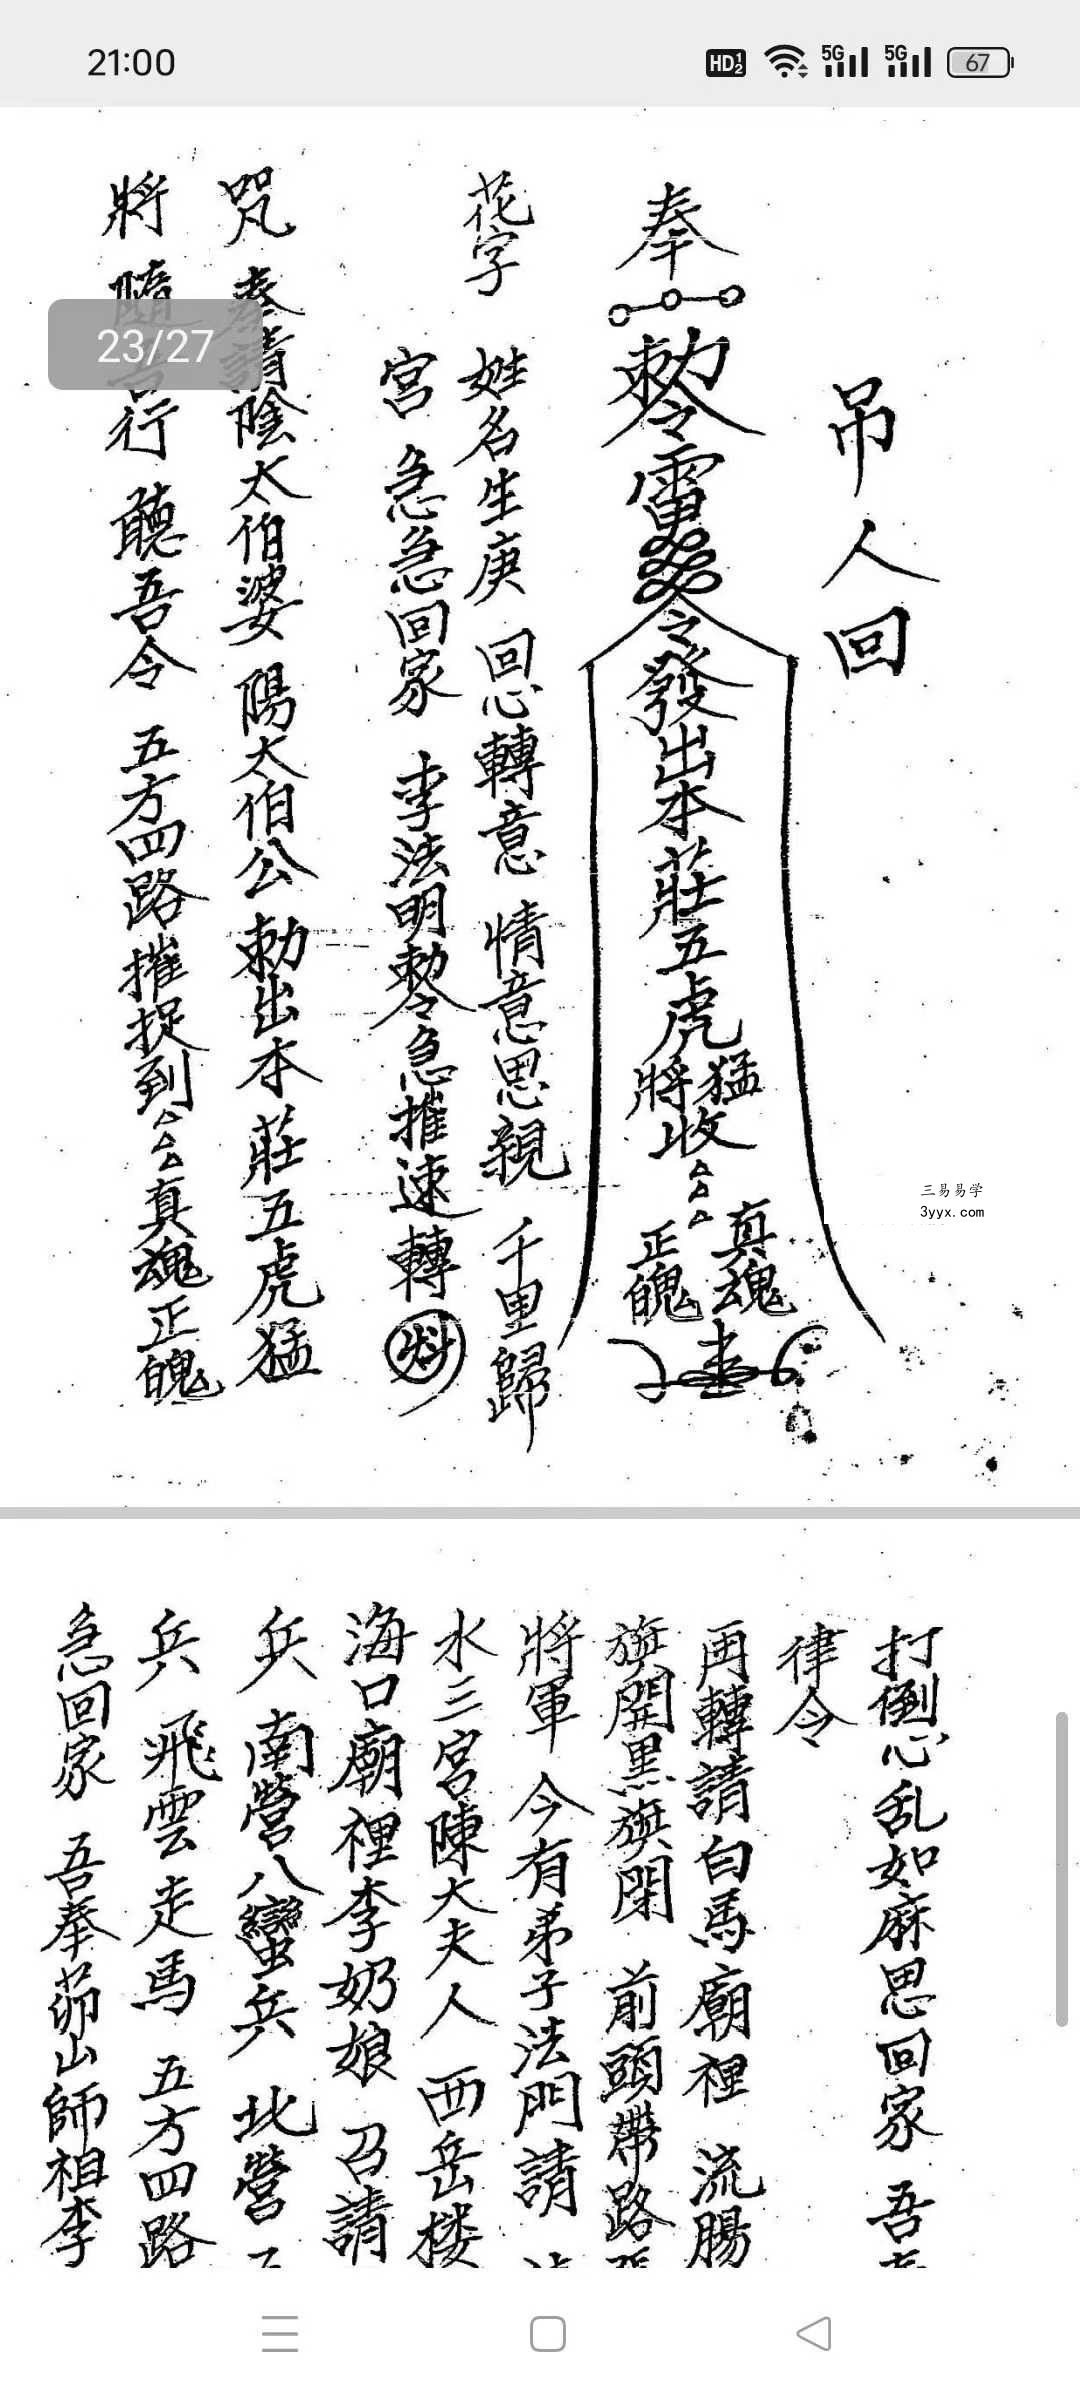 21:00
HD 1 2 5G 5G 67
23/27
吊人回
奉 勅令雷 令發出本莊五虎猛將收 真魂正魄
花字 姓名生庚 回心轉意 情意思親 千里歸
宮 急急回家 李法明勅令急摧速轉
咒 奉請陰太伯婆 陽太伯公 勅出本莊五虎猛
將 隨吾行 聽吾令 五方四路摧捉到 真魂正魄
三易易学
3yyx.com
打倒心乱如麻思回家 吾
律令
再轉請白馬廟裡 流腸
旗開黑旗閉 前頭帶路
將軍 今有弟子法門請
水三宮陳大夫人 西岳楼
海口廟裡李奶娘 召請
兵 南營八蠻兵 北營
兵 飛雲走馬 五方四路
急回家 吾奉茆山師祖李